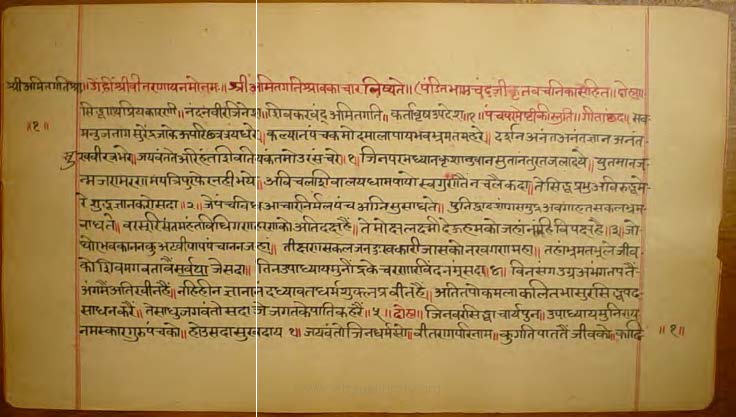 श्रीअमितगतिश्रा॰ ॥ॐह्रींश्रीवीतरागायनमोनमः॥ श्रीअमितगतिश्रावकाचार लिष्यते॥ (पंडितभागचंद्रजीकृतवचनिकासहित) दोहा॥
सिद्धारथप्रियकारणी॥ नंदनवीरजिनेश॥ शिवकरवंदूअमितगति॥ कर्तावृषउपदेश॥१॥ पंचपरमेष्टीकीस्तुति॥ गीताछंद॥
॥१॥ मनुजनागसुरेंद्रजाकेउपरिछत्रत्रयधरे॥ कल्यानपंचकमोदमालापायभवभ्रमतमहरे॥ दर्शनअनंतअनंतज्ञानअनंत
सुखवीरजभरे॥ जयवंततेअरिहंतशिवतियकंतमोउरसंचरे॥१॥ जिनपरमध्यानकृशानु
न्मजरामरण॥ अविचलशिवालयधामपायोस्वगुणतैंनचलैकदा॥ तेसिद्धप्रभुअविरुद्धमे
रेशुद्धज्ञानकरोसदा॥२॥ जेपंचविधआचारनिर्मलपंचअग्निसुसाधते॥ पुनिद्वादशांगसमुद्रअवगाहतसकलभ्रम
बाधते॥ वरसूरिसंतमहंतविधिगणहरणकोअतिदक्षहैं॥ तेमोक्षलक्ष्मीदेहुहमकोजहांनाहिविपक्षहै॥३॥ जो
घोरभवकानन पापपंचाननजहां॥ तीक्षणसकलजनदुःखकारीजासकोनखगणमहा॥ तहांभ्रमतभूलेजीव
कोशिवमगबतावैंसर्वथाजेसदा॥ तिनउपाध्यायमुनींद्रकेचरणारविंदनमूसदा॥४॥ विनसंगउग्रअभंगतपतैं
अंगमैंअतिखीनहैं॥ नहिहीनज्ञानानंदध्यावतधर्मशुक्लप्रवीनहैं॥ अतितपोकमलाकलितभासुरसिद्धपद
साधनकरैं॥ तेसाधुजयवंतोसदाजेजगतकेपातिकहरैं॥५॥ दोहा॥ जिनवरसिद्धाचार्यपुन॥ उपाध्यायमुनिराय
नमस्कारगुरुपंचको॥ होउसदासुखदाय॥१॥ जयवंतोजिनधर्मसो॥ वीतरागपरिनाम॥ कुगतिपाततैंजीवको॥ काढि ॥१॥